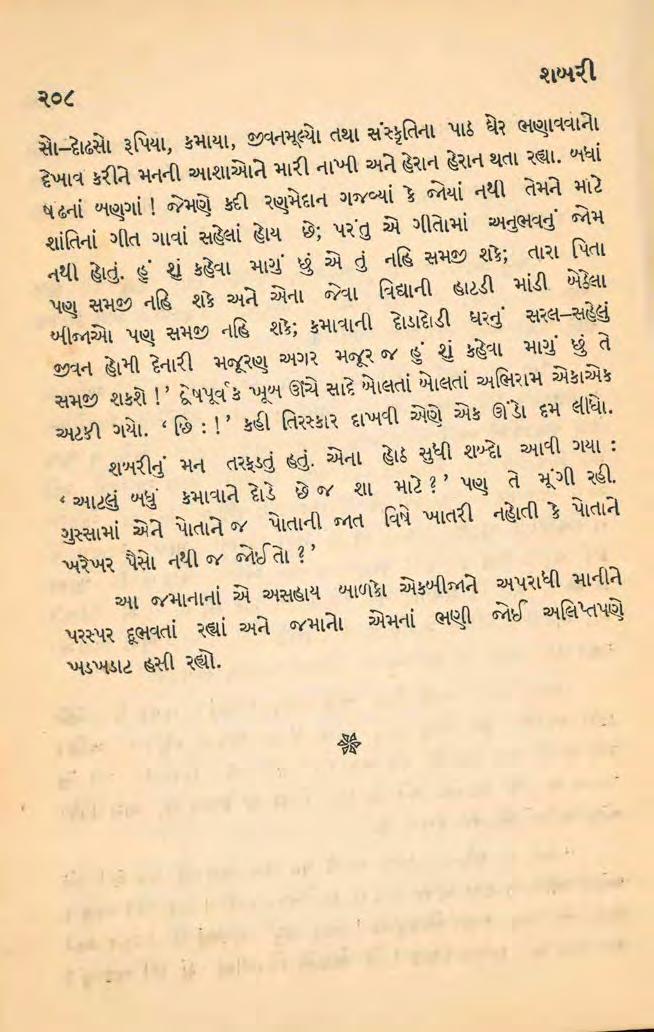 ૨૦૮
શબરી
સો–દોઢસો રૂપિયા, કમાયા, જીવનમૂલ્યો તથા સંસ્કૃતિના પાઠ ઘેર ભણાવવાનો
દેખાવ કરીને મનની આશાઓને મારી નાખી અને હેરાન હેરાન થતા રહ્યા. બધાં
ષઢનાં બણગાં ! જેમણે કદી રણમેદાન ગજવ્યાં કે જોયાં નથી તેમને માટે
શાંતિનાં ગીત ગાવાં સહેલાં હોય છે; પરંતુ એ ગીતોમાં અનુભવનું જોમ
નથી હોતું. હું શું કહેવા માગું છું એ તું નહિ સમજી શકે; તારા પિતા
પણ સમજી નહિ શકે અને એના જેવા વિદ્યાની હાટડી માંડી બેઠેલા
બીજાઓ પણ સમજી નહિ શકે; કમાવાની દોડાદોડી ઘરનું સરલ–સહેલું
જીવન હોમી દેનારી મજૂરણ અગર મજૂર જ હું શું કહેવા માગું છું તે
સમજી શકશે !’ દ્વેષપૂર્વક ખૂબ ઊંચે સાદે બોલતાં બોલતાં અભિરામ એકાએક
અટકી ગયો. ‘ છિ : !’ કહી તિરસ્કાર દાખવી એણે એક ઊંડો દમ લીધો.
શબરીનું મન તરફડતું હતું. એના હોઠ સુધી શબ્દો આવી ગયા :
‘ આટલું બધું કમાવાને દોડે છે જ શા માટે ?’ પણ તે મૂંગી રહી.
ગુસ્સામાં એને પોતાને જ પોતાની જાત વિષે ખાતરી નહોતી કે પોતાને
ખરેખર પૈસો નથી જ જોઈતો ?’
આ જમાનાનાં એ અસહાય બાળકો એકબીજાને અપરાધી માનીને
પરસ્પર દૂભવતાં રહ્યાં અને જમાનો એમનાં ભણી જોઈ અલિપ્તપણે
ખડખડાટ હસી રહ્યો.